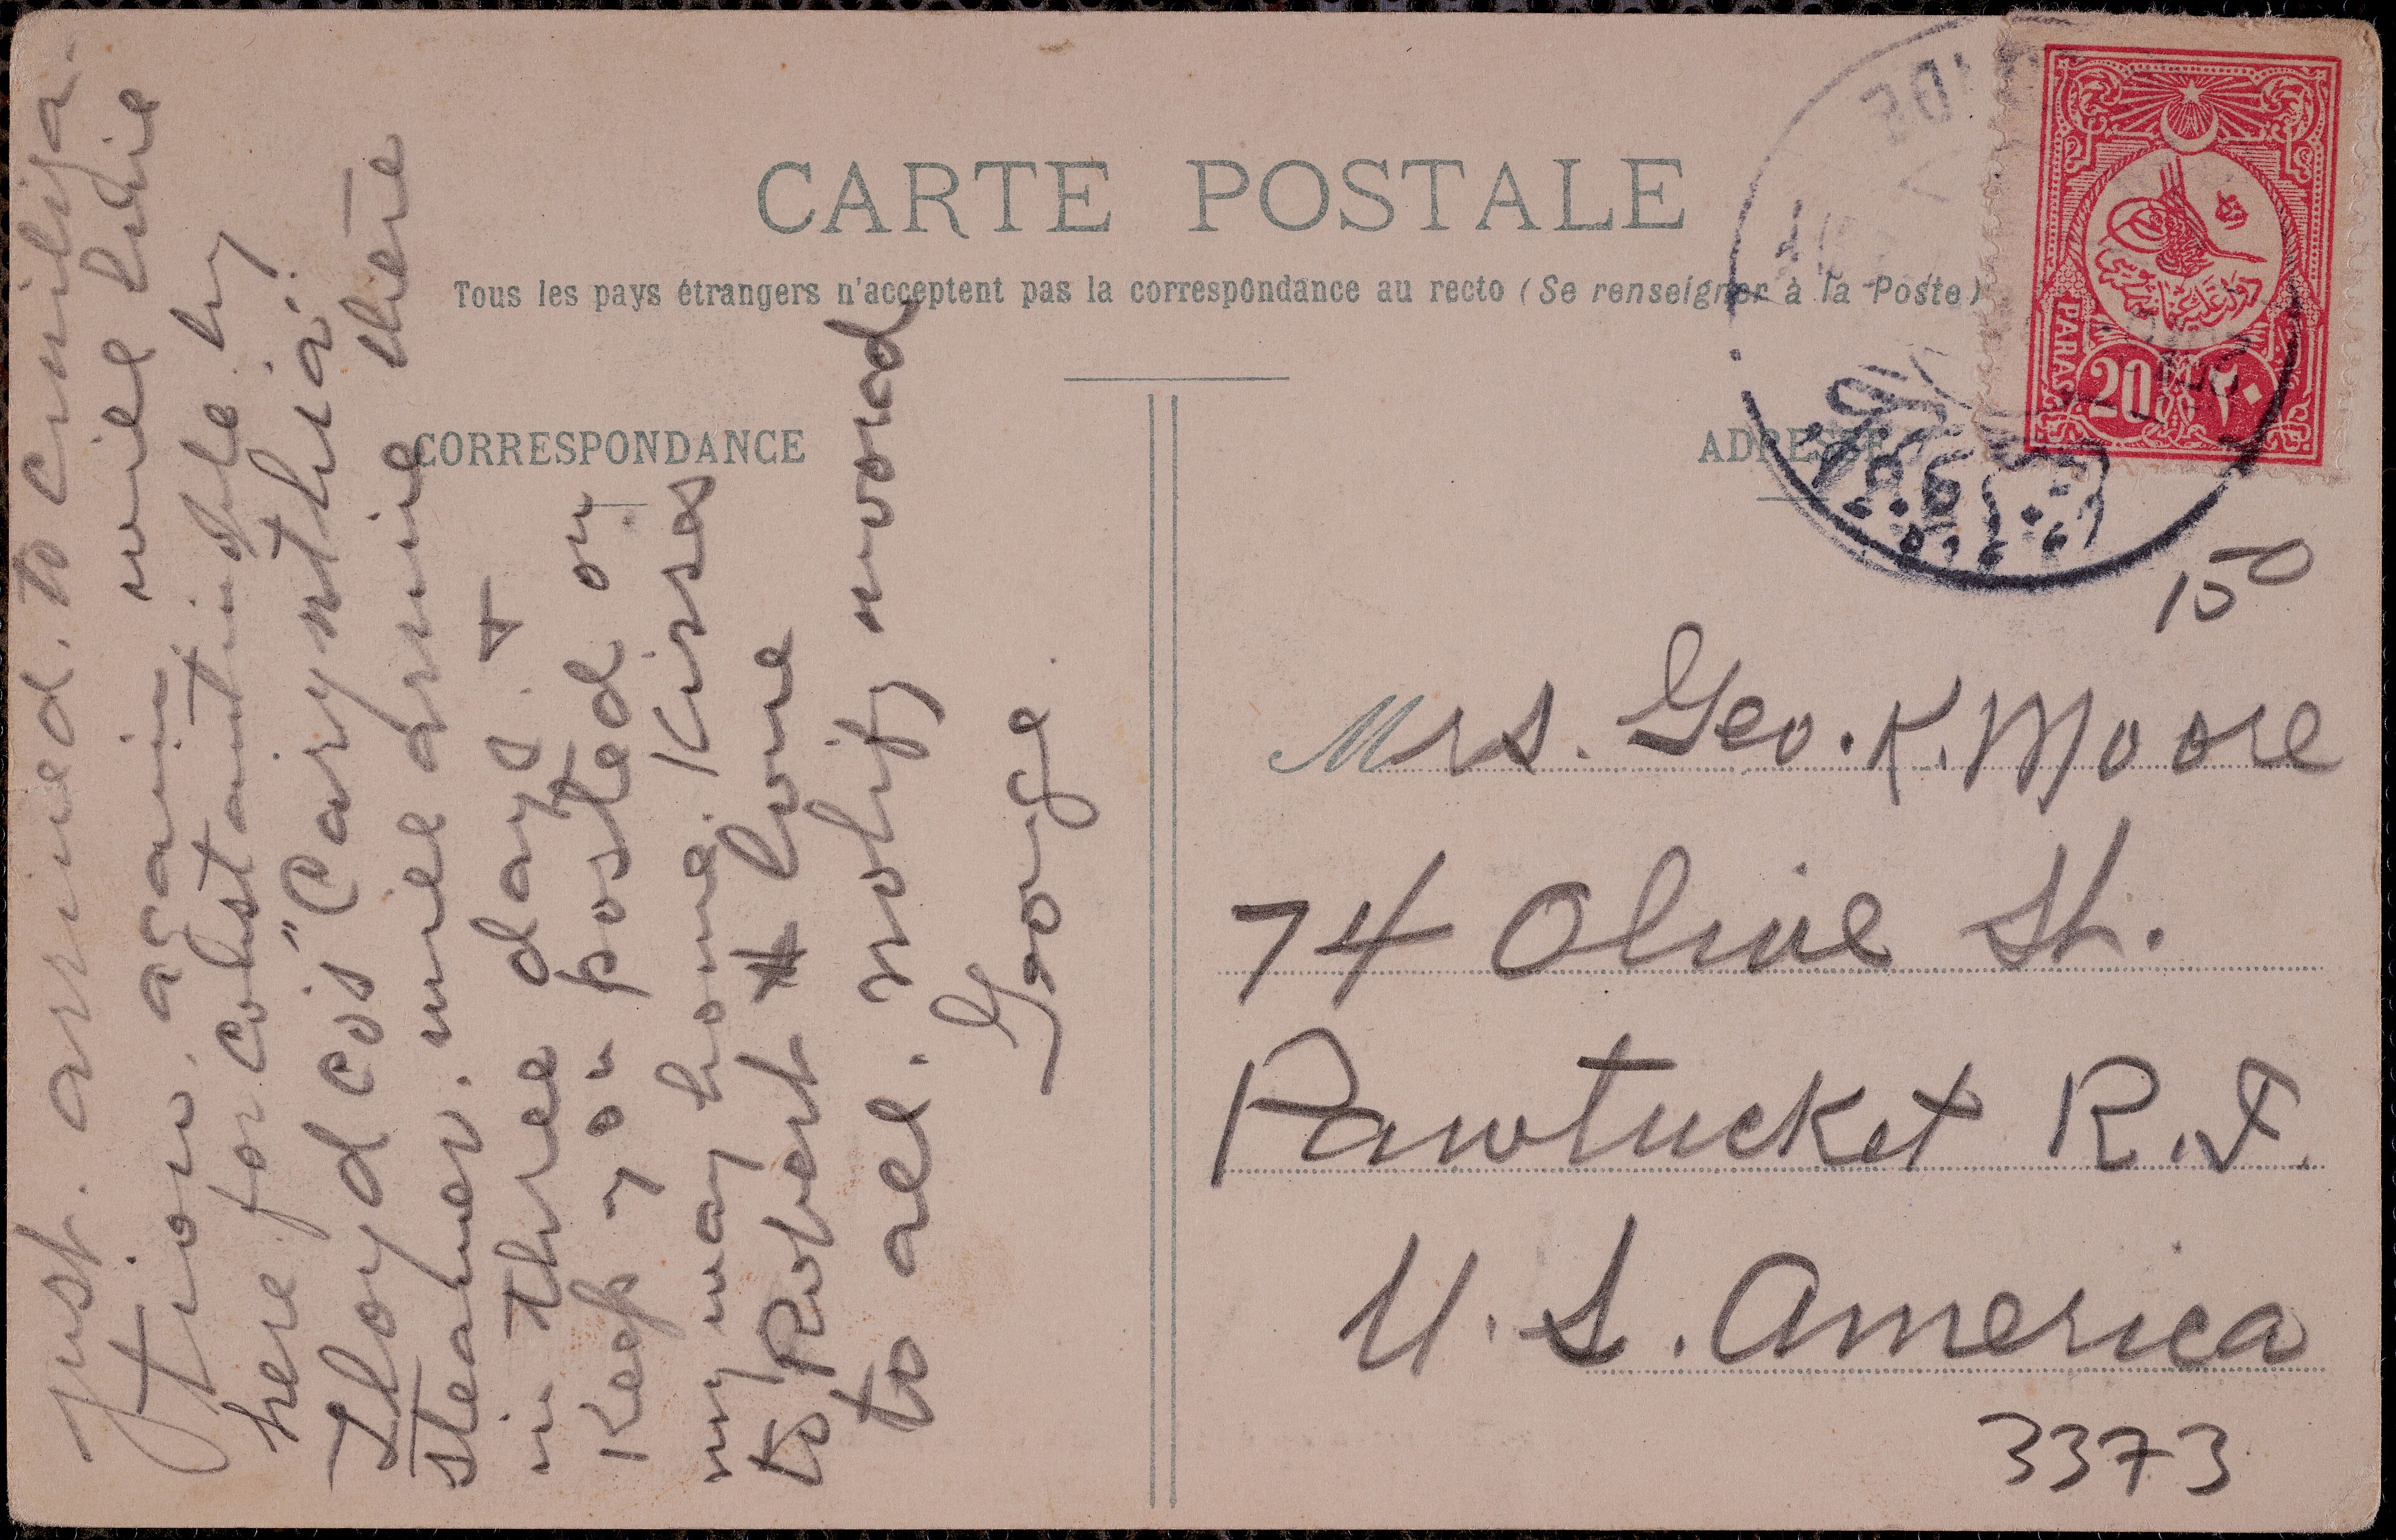 CARTE POSTALE
Tous les pays étrangers n'acceptent pas la correspondance au recto (Se renseigner à la Poste)
CORRESPONDANCE
just. arrived. to civiliza-
tion. again will take
here for Constantinople by
Lloyd Co's "Carynthia"
steamer. will arrive there
in three days. +
Keep you posted on
my way home. Kisses
to Robert love
to all. notify
George.
ADRESSE
PARAS
20 ٢٠
150
Mrs. Geo. K. Moore
74 Olive St.
Pawtucket R.I.
U.S. America
3373